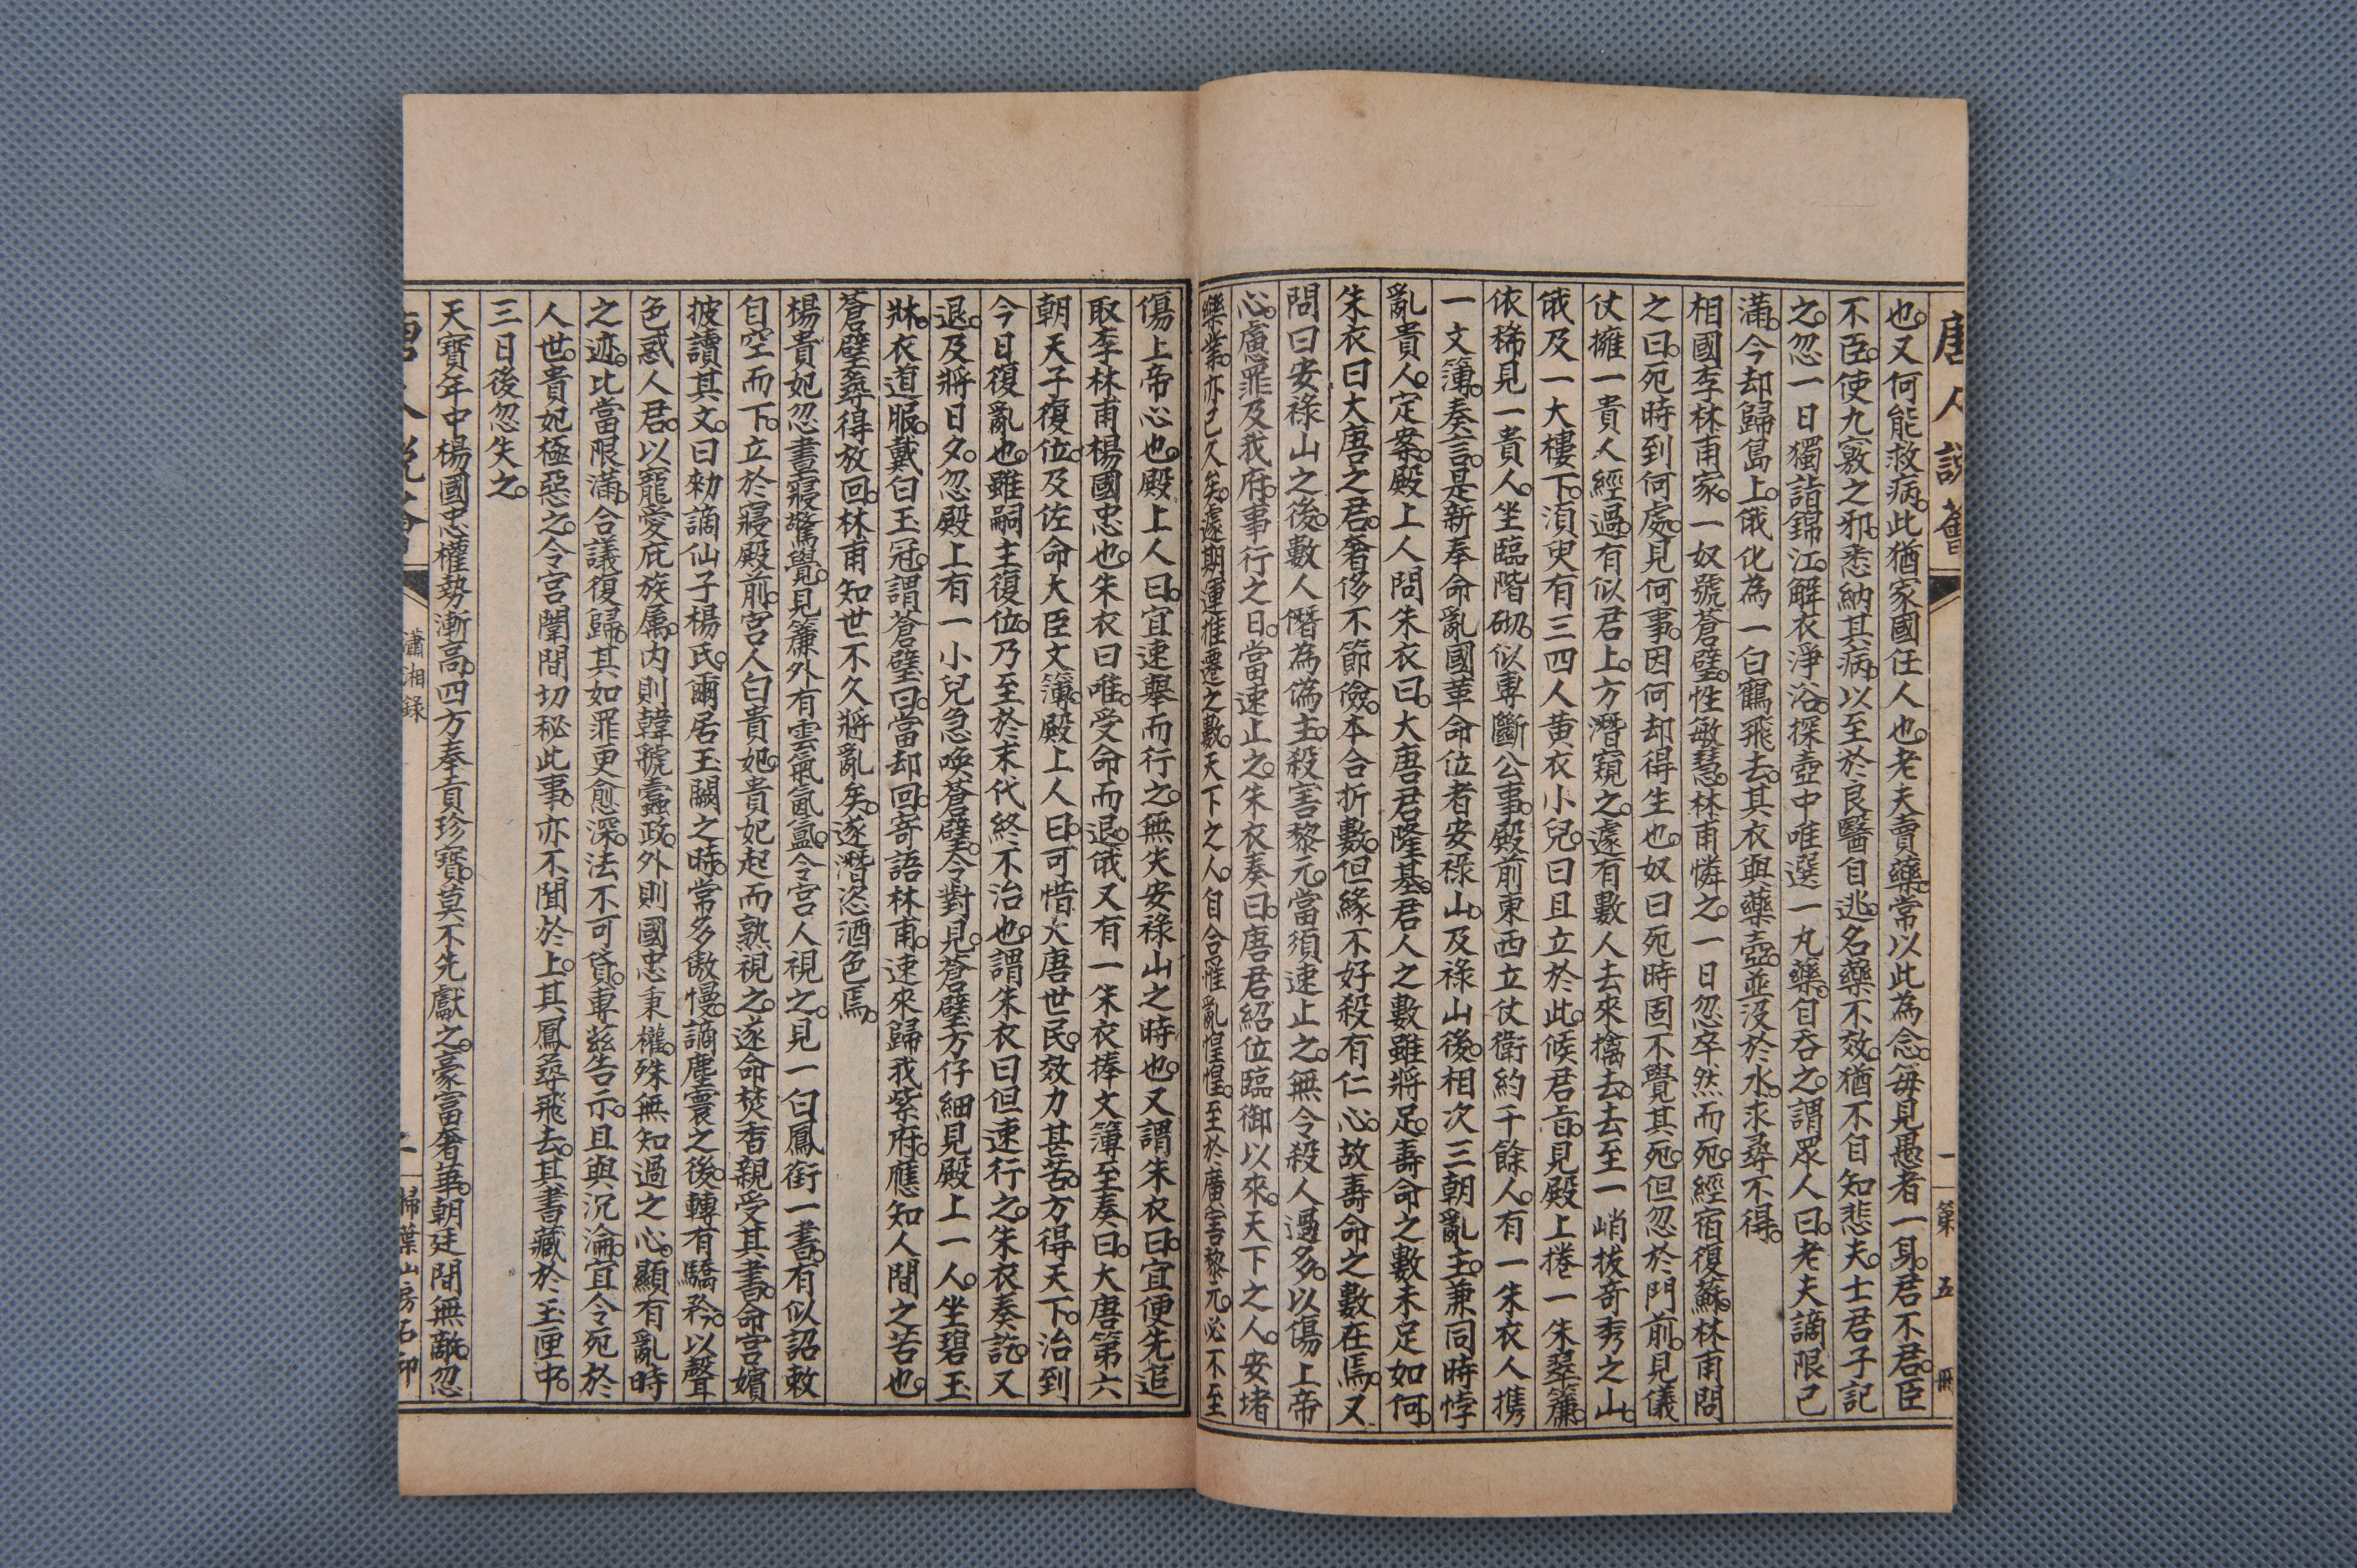 唐人說薈 一 第五冊
也。又何能救病。此猶家國任人也。老夫賣藥。常以此為念。每見愚者一身。君不君。臣
不臣。使九竅之邪。悉納其病。以至於良醫自逃。名藥不效。猶不自知。悲夫。士君子記
之。忽一日獨詣錦江。解衣淨浴。探壺中唯選一丸藥。自吞之。謂眾人曰。老夫謫限已
滿。今却歸島上。俄化為一白鶴飛去。其衣與藥壺。並沒於水。求尋不得。
相國李林甫家。一奴號蒼璧。性敏慧。林甫憐之。一日忽卒然而死。經宿復蘇。林甫問
之曰。死時到何處。見何事。因何却得生也。奴曰死時固不覺其死。但忽於門前。見儀
仗擁一貴人經過。有似君上。方潛窺之。遽有數人去來擒去。去至一峭拔奇秀之山。
俄及一大樓下。須臾有三四人黃衣小兒。曰且立於此。候君旨。見殿上捲一朱翠簾。
依稀見一貴人。坐臨階砌。似專斷公事。殿前東西立仗衛約千餘人。有一朱衣人携
一文簿。奏言。是新奉命亂國革命位者安祿山。及祿山後。相次三朝亂主。兼同時悖
亂貴人。定案。殿上人問朱衣曰。大唐君隆基。君人之數雖將足。壽命之數未足如何。
朱衣曰大唐之君。奢侈不節儉。本合折數。但緣不好殺有仁心。故壽命之數在焉。又
問曰安祿山之後。數人僭為偽主。殺害黎元。當須速止之。無令殺人過多。以傷上帝
心。慮罪及我府。事行之日。當速止之。朱衣奏曰。唐君紹位臨御以來。天下之人。安堵
樂業。亦已久矣。據期運推遷之數。天下之人。自合罹亂惶惶。至於廣害黎元。必不至
傷上帝心也。殿上人曰。宜速舉而行之。無失安祿山之時也。又謂朱衣曰。宜便先追
取李林甫楊國忠也。朱衣曰唯。受命而退。俄又有一朱衣捧文簿至。奏曰。大唐第六
朝天子復位。及佐命大臣文簿。殿上人曰。可惜大唐世民。效力甚苦。方得天下。治到
今日復亂也。雖嗣主復位。乃至於末代終不治也。謂朱衣曰但速行之。朱衣奏訖。又
退。及將日夕。忽殿上有一小兒急喚蒼璧。令對見。蒼璧方仔細見殿上一人。坐碧玉
牀。衣道服。戴白玉冠。謂蒼璧曰。當却回。寄語林甫。速來歸我紫府。應知人間之苦也。
蒼璧尋得放回。林甫知世不久將亂矣。遂潛恣酒色焉。
楊貴妃忽晝寢驚覺。見簾外有雲氣氤氳。令宮人視之。見一白鳳銜一書。有似詔敕
自空而下。立於寢殿前。宮人白貴妃。貴妃起而熟視之。遂命焚香親受其書。命宮嬪
披讀其文。曰勑謫仙子楊氏。爾居玉闕之時。常多傲慢。謫塵寰之後。轉有驕矜。以聲
色惑人君。以寵愛庇族屬。內則韓虢蠹政。外則國忠秉權。殊無知過之心。顯有亂時
之迹。比當限滿。合議復歸。其如罪更愈深。法不可貸。專茲告示。且與沉淪。宜令死於
人世。貴妃極惡之。令宮闈間切秘此事。亦不聞於上。其鳳尋飛去。其書藏於玉匣中。
三日後忽失之。
天寶年中楊國忠權勢漸高。四方奉貢珍寶。莫不先獻之。豪富奢華。朝廷間無敵。忽
唐人說薈 瀟湘錄 二 掃葉山房石印